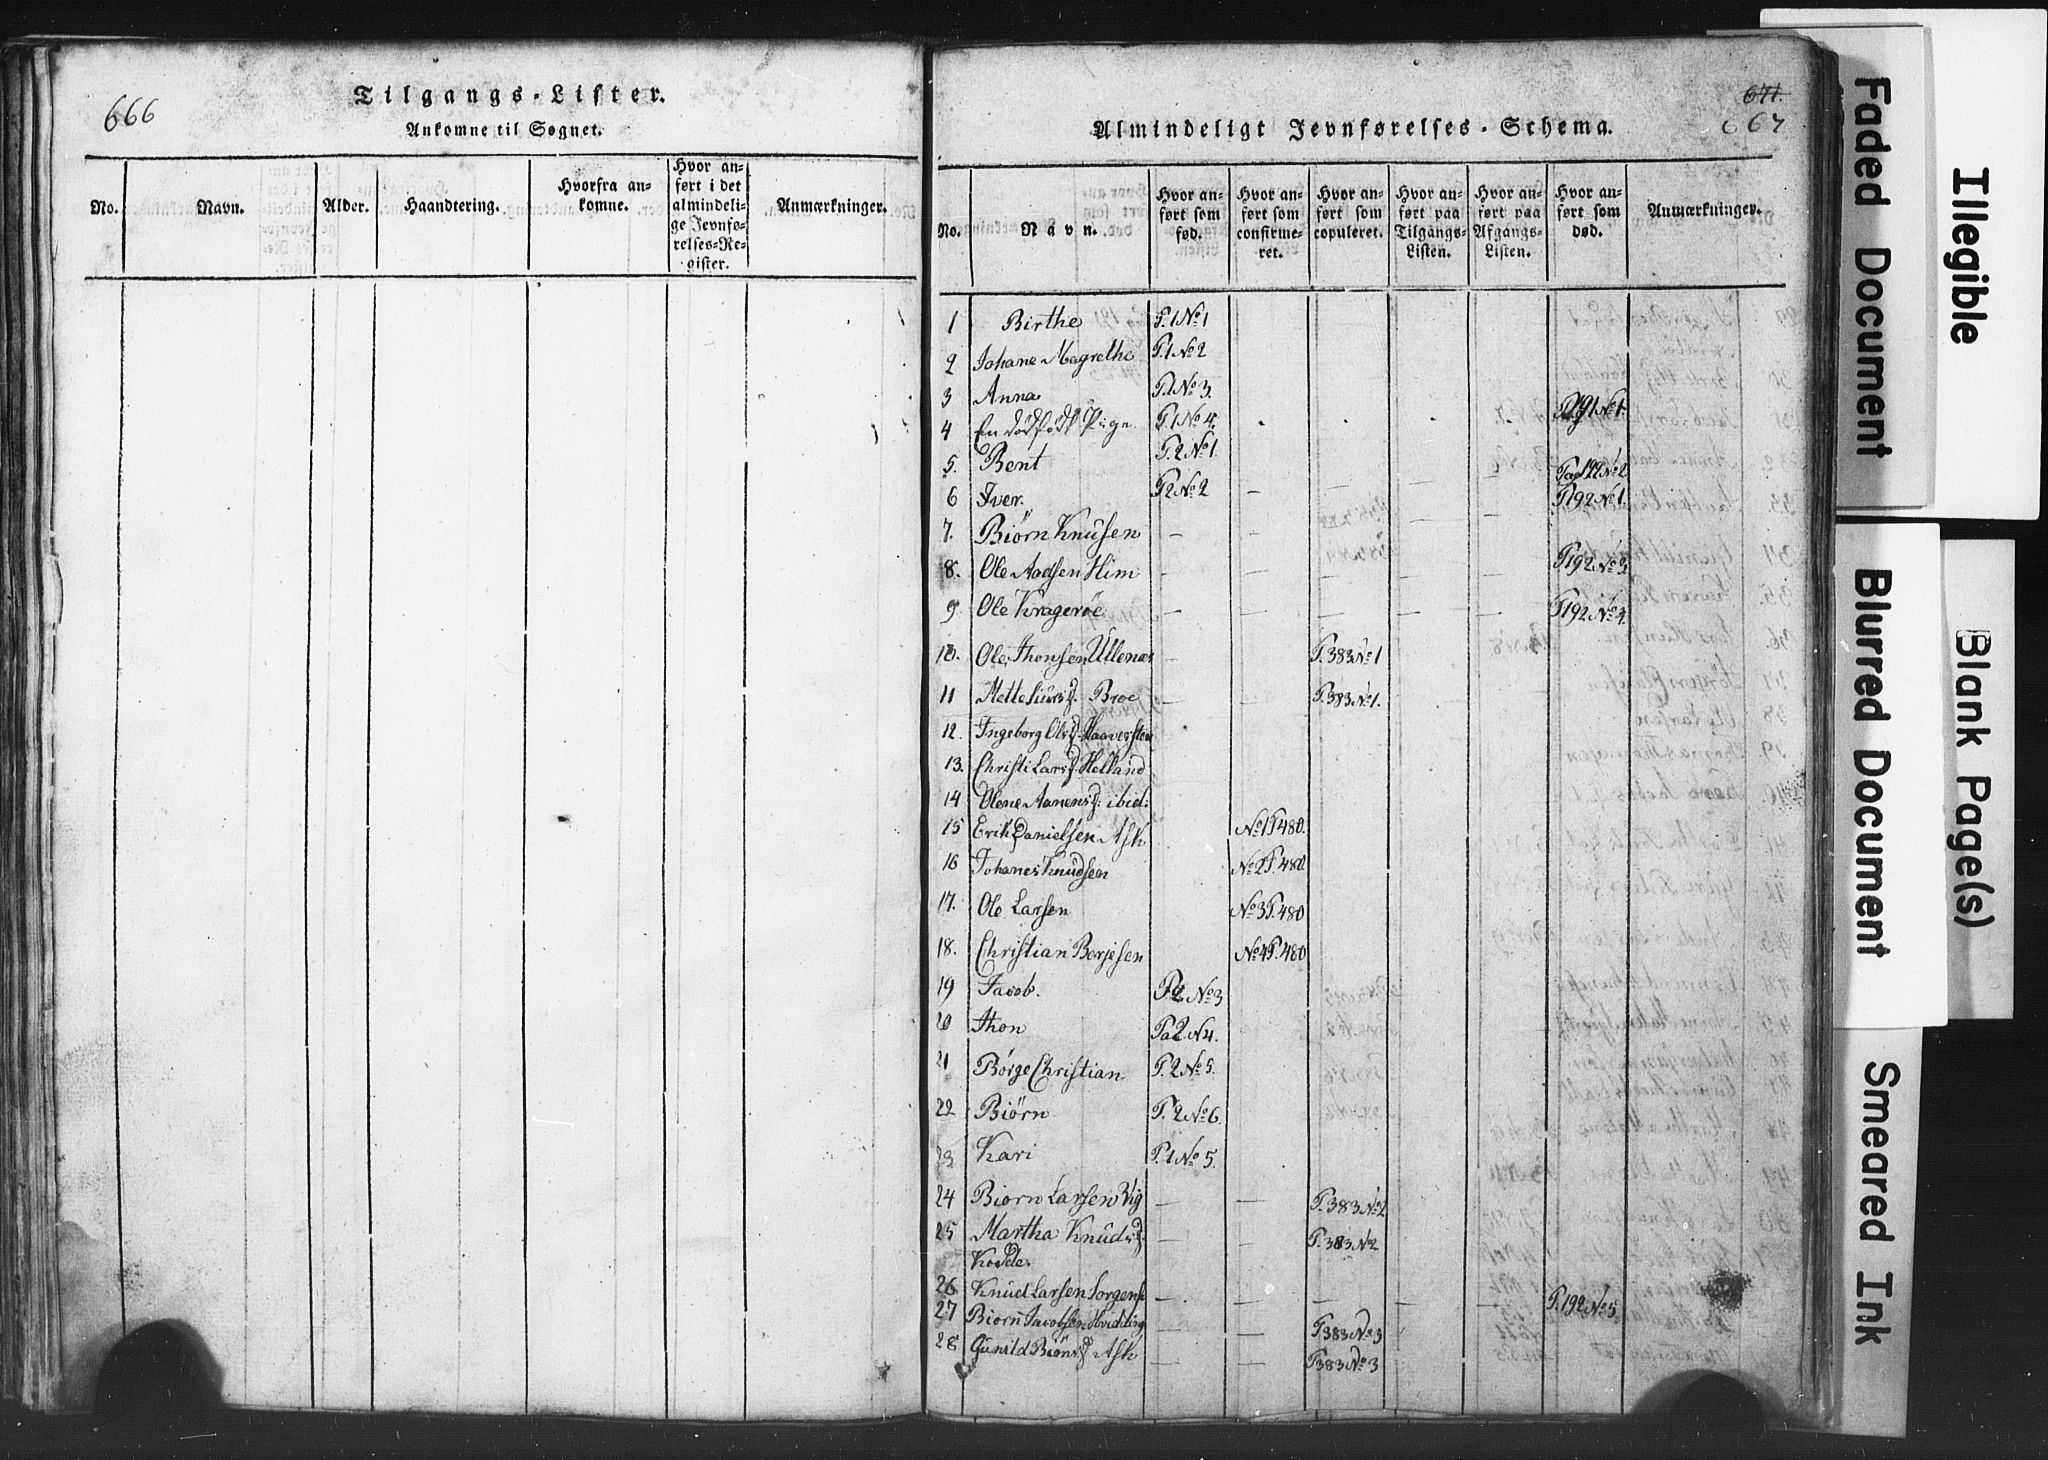 666
Tilgangs-Lister.
Ankomne til Sognet.
No.
Navn.
Alder.
Haandtering.
Hvorfra an-
komne.
Hvor an-
ført i det
almindeli-
ge Jevnfø-
relses-Re-
gister.
Anmærkninger.
671.
667
Almindeligt Jevnførelses-Schema.
No.
Navn.
Hvor an-
ført som
fød.
Hvor an-
ført som
confirme-
ret.
Hvor an-
ført som
copuleret.
Hvor an-
ført paa
Tilgangs-
Listen.
Hvor an-
ført paa
Afgangs-
Listen.
Hvor an-
ført som
død.
Anmærkninger.
1 Birthe P.1 No 1
2 Johane Magrethe P.1 No 2
3 Anna P.1 No 3.
4 En dödfödt Pige P.1 No 4. 191 No 1.
5. Bent P.2 No 1. Pag 192 No 2
6 Iver. P2 No 2 — — — — P192 No 1.
7. Biörn Knudsen — — — —
8. Ole Aadsen Him — — — — — P192 No 3
9. Ole Kragerøe — — — — — P192 No 4.
10. Ole Thonsen Ullenæs — P.383 No 1
11 Mette Siursd. Broe — — P.383 No 1.
12. Ingeborg Olsd. Haaversten
13. Christi Larsd. Helland
14 Olene Aanensd: ibid:
15 Erik Danielsen Ask No 1 P480.
16 Johanes Knudsen No 2 P.480
17. Ole Larsen No 3 P.480
18. Christian Berjesen No 4 P.480
19 Jacob. P2 No 3
20 Thon Pa 2 N4.
21 Börge Christian P.2 No 5.
22 Biörn P.2 No 6.
23 Kari P.1 No 5.
24 Biorn Larsen Vig — — P.383 No 2
25 Martha Knudsd. — — P.383 No 2
Kodde.
26 Knud Larsen — — — — — P.192 No 5
27 Biorn Jacobsen — — P383 No 3 —
28 Gunild Biörnsd Ask — — P383 No 3
Faded Document
Illegible
Blurred Document
Blank Page(s)
Smeared Ink